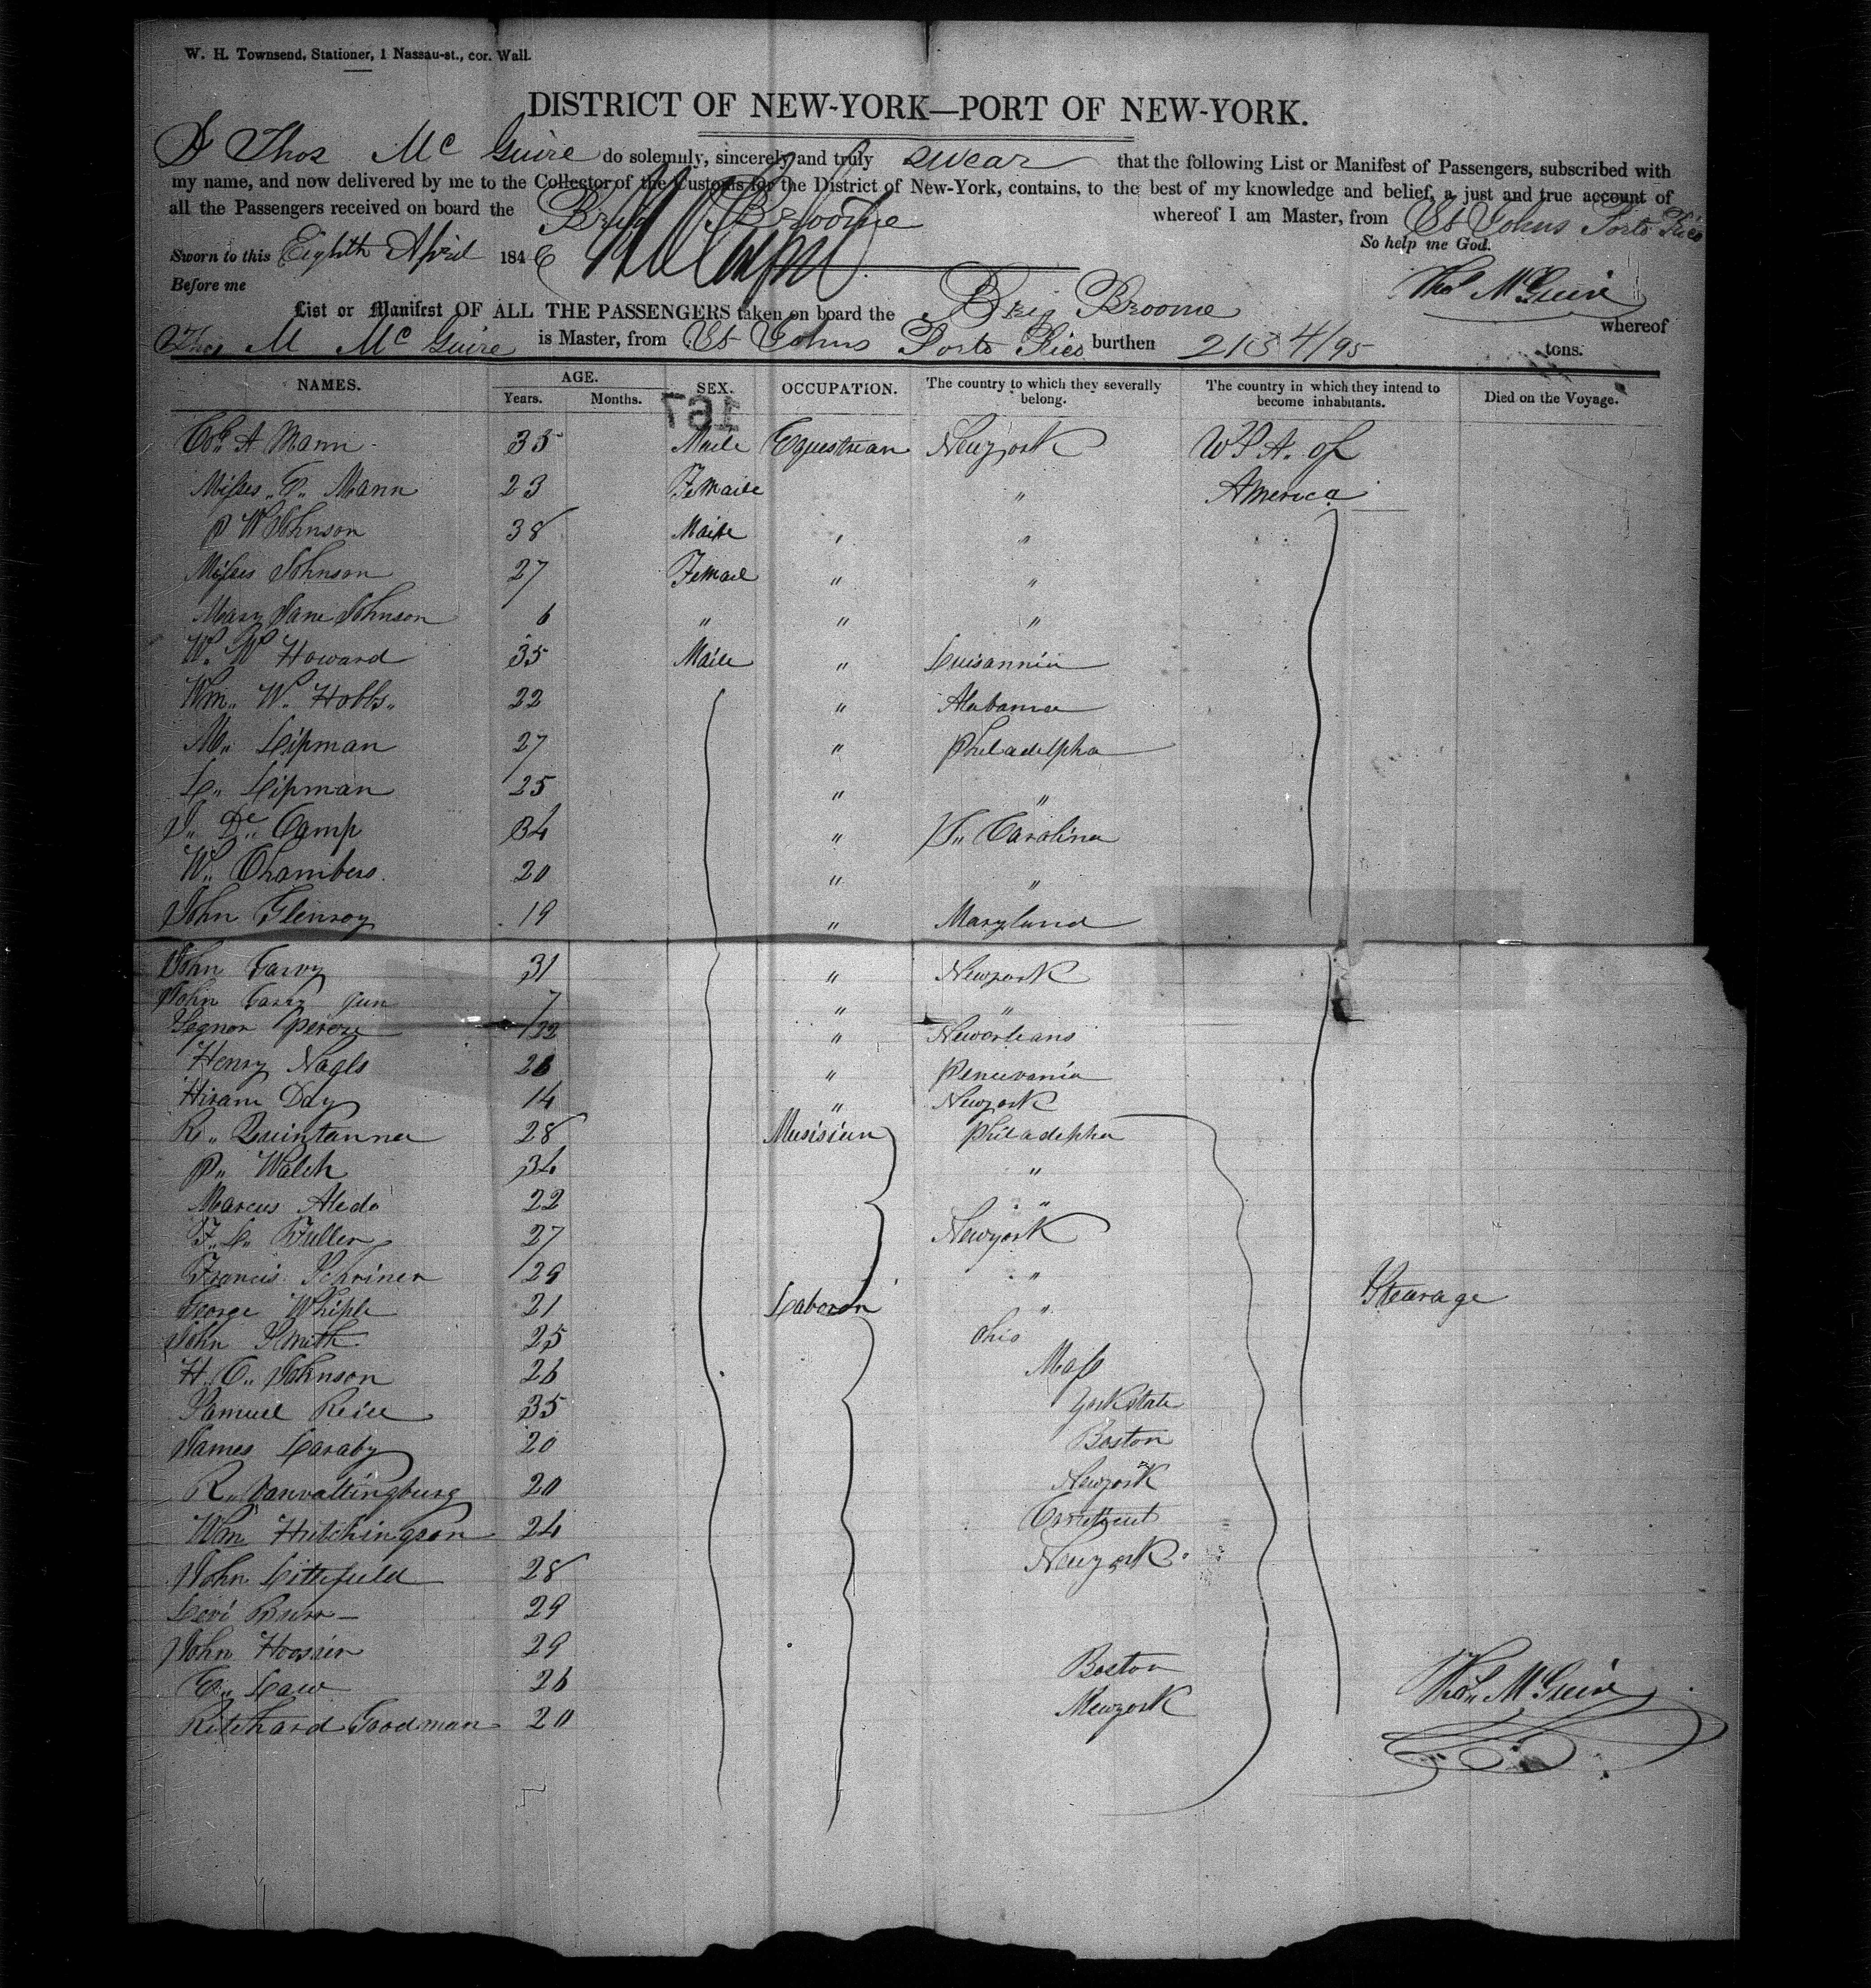 W. H. Townsend, Stationer, 1 Nassau-st., cor. Wall.
DISTRICT OF NEW-YORK—PORT OF NEW-YORK.
I Thos Mc Guire do solemnly, sincerely and truly swear that the following List or Manifest of Passengers, subscribed with
my name, and now delivered by me to the Collector of the Customs for the District of New-York, contains, to the best of my knowledge and belief, a just and true account of
all the Passengers received on board the Brig Broome whereof I am Master, from St Johns Porto Rico
So help me God.
Sworn to this Eighth April 1846
Before me
Thos McGuire
List or Manifest OF ALL THE PASSENGERS taken on board the Brig Broome whereof
Thos M Mc Guire is Master, from St Johns Porto Rico burthen 213 4/95 tons.
NAMES. AGE. SEX. OCCUPATION. The country to which they severally belong. The country in which they intend to become inhabitants. Died on the Voyage.
Years. Months.
167
A Mann 35 Maile Equestrian Newyork of
Misses C. Mann 23 Femaile " America
P W Johnson 38 Maile " "
Misses Johnson 27 Femail " "
Mary Jane Johnson 6 " " "
W. W Howard 35 Maile " Luisannia
Wm. W. Hobbs 22 " Alabama
M. Lipman 27 " Philadelpha
L. Lipman 25 " "
J. De Camp 34 " Carolina
W. Chambers 20 " "
John Glenroy 19 " Maryland
John 31 " Newyork
John jun 7 " "
22 " Neworleans
Henry Nagls " Penuvania
Hiram Day 14 " Newyork
R. Quintanna 28 Musisian Philadelpha
P. Walch 34 "
Marcus Aledo 22 "
F. L. Fuller 27 Newyork
Francis Schriner 29 "
George Whiple 21 "
John Smith 25 Ohio
H. C. Johnson 26 Mass
Samuel 35 York State
James Laraby 20 Boston
R. Vanvaltingburg 20 Newyork
Wm Hutchingson 24
John Littefield 28 Newyork
Levi 29
John Hoosier 29
E. Law 26 Boston
Ritchard Goodman 20 Newyork
Stearage
Thos McGuire